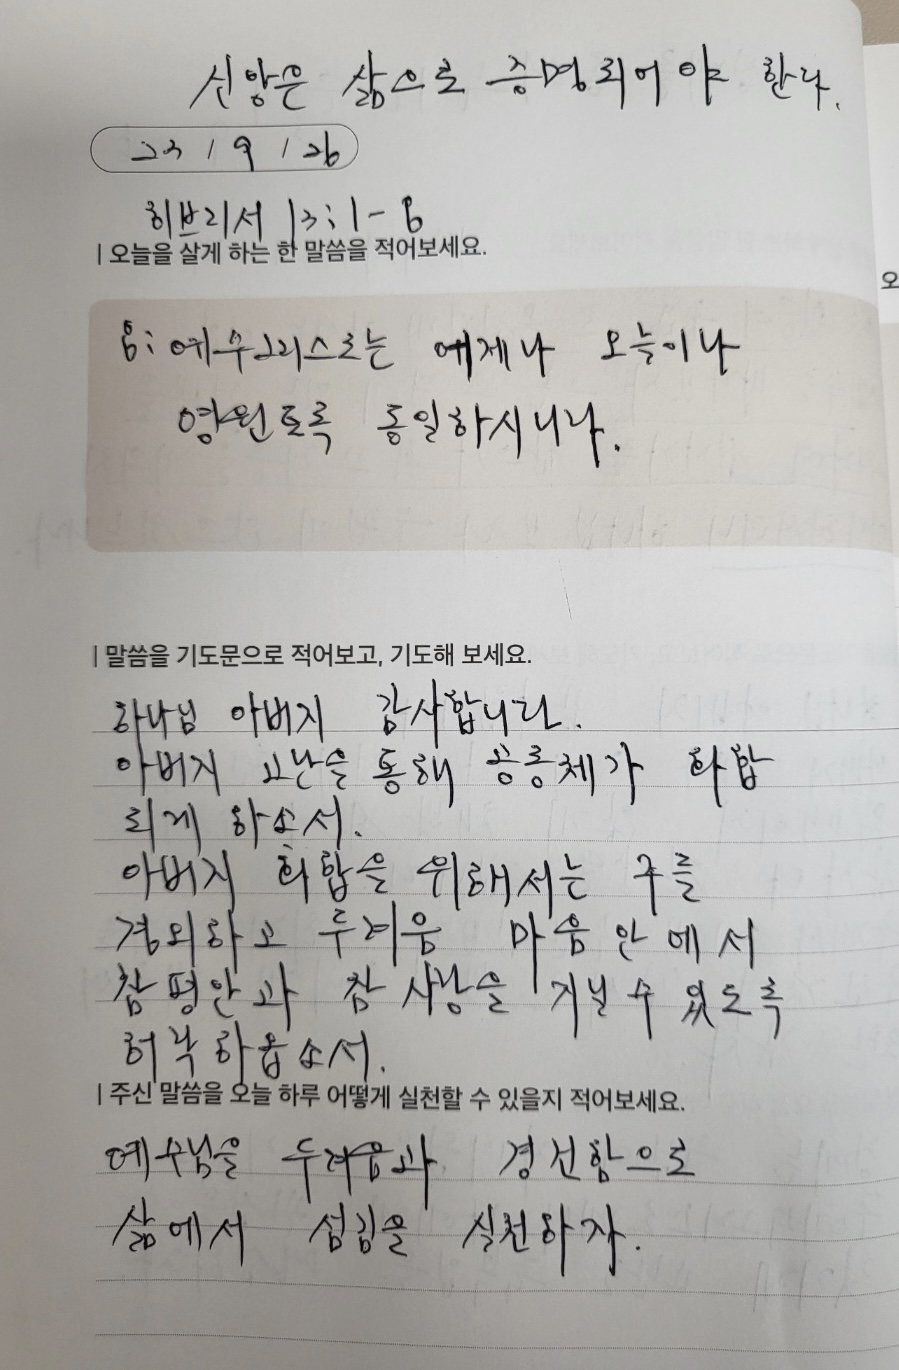 신앙은 삶으로 증명되어야 한다.
23 / 9 / 26
히브리서 13:1-8
| 오늘을 살게 하는 한 말씀을 적어보세요.
오
8: 예수그리스도는 어제나 오늘이나
영원토록 동일하시니라.
| 말씀을 기도문으로 적어보고, 기도해 보세요.
하나님 아버지 감사합니다.
아버지 고난을 통해 공동체가 화합
되게 하소서.
아버지 화합을 위해서는 주를
경외하고 두려움 마음 안에서
참 평안과 참 사랑을 지닐 수 있도록
허락하옵소서.
| 주신 말씀을 오늘 하루 어떻게 실천할 수 있을지 적어보세요.
예수님을 두려움과 경건함으로
삶에서 섬김을 실천하자.